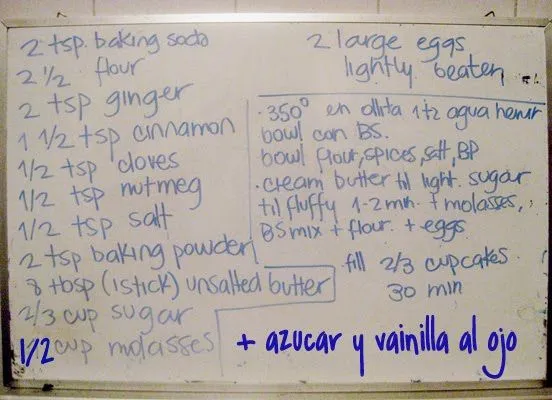 2 tsp baking soda
2 1/2 flour
2 tsp ginger
1 1/2 tsp cinnamon
1/2 tsp cloves
1/2 tsp nutmeg
1/2 tsp salt
2 tsp baking powder
8 tbsp (1 stick) unsalted butter
2/3 cup sugar
1/2 cup molasses
2 large eggs
lightly beaten
· 350° en ollita 1+2 agua hervir
bowl con BS.
bowl flour, spices, salt, BP
· cream butter til light. sugar
til fluffy 1-2 min. + molasses,
BS mix + flour. + eggs
fill 2/3 cupcakes.
30 min
+ azucar y vainilla al ojo